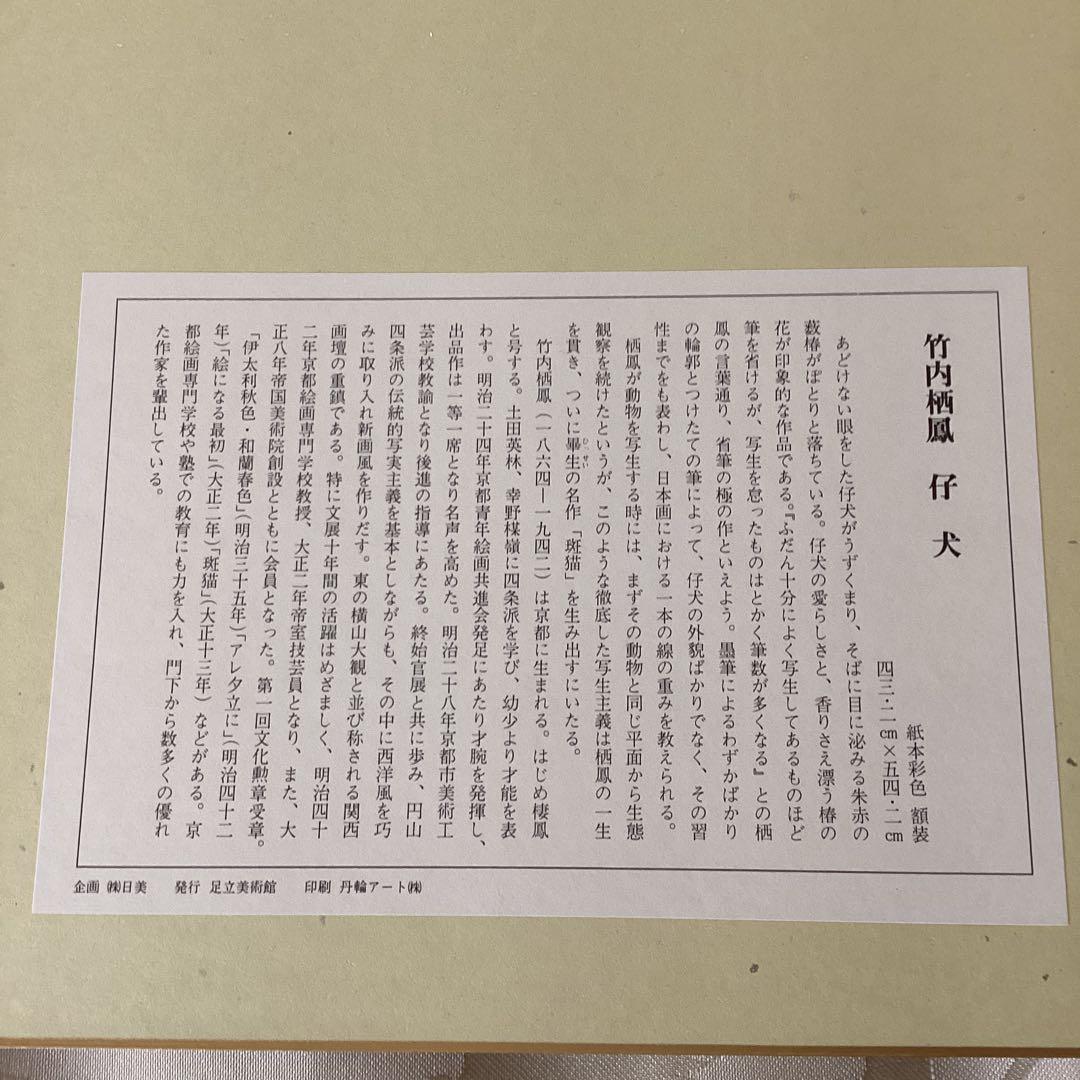 竹内栖鳳　仔　犬
紙本彩色　額装
四三・二㎝×五四・二㎝
あどけない眼をした仔犬がうずくまり、そばに目に泌みる朱赤の
藪椿がぽとりと落ちている。仔犬の愛らしさと、香りさえ漂う椿の
花が印象的な作品である。『ふだん十分によく写生してあるものほど
筆を省けるが、写生を怠ったものはとかく筆数が多くなる』との栖
鳳の言葉通り、省筆の極の作といえよう。墨筆によるわずかばかり
の輪郭とつけたての筆によって、仔犬の外貌ばかりでなく、その習
性までをも表わし、日本画における一本の線の重みを教えられる。
栖鳳が動物を写生する時には、まずその動物と同じ平面から生態
観察を続けたというが、このような徹底した写生主義は栖鳳の一生
を貫き、ついに畢生の名作「斑猫」を生み出すにいたる。
竹内栖鳳（一八六四―一九四二）は京都に生まれる。はじめ棲鳳
と号する。土田英林、幸野楳嶺に四条派を学び、幼少より才能を表
わす。明治二十四年京都青年絵画共進会発足にあたり才腕を発揮し、
出品作は一等一席となり名声を高めた。明治二十八年京都市美術工
芸学校教諭となり後進の指導にあたる。終始官展と共に歩み、円山
四条派の伝統的写実主義を基本としながらも、その中に西洋風を巧
みに取り入れ新画風を作りだす。東の横山大観と並び称される関西
画壇の重鎮である。特に文展十年間の活躍はめざましく、明治四十
二年京都絵画専門学校教授、大正二年帝室技芸員となり、また、大
正八年帝国美術院創設とともに会員となった。第一回文化勲章受章。
「伊太利秋色・和蘭春色」（明治三十五年）「アレ夕立に」（明治四十二
年）「絵になる最初」（大正二年）「斑猫」（大正十三年）などがある。京
都絵画専門学校や塾での教育にも力を入れ、門下から数多くの優れ
た作家を輩出している。
企画　㈱日美　　発行　足立美術館　　印刷　丹輪アート㈱